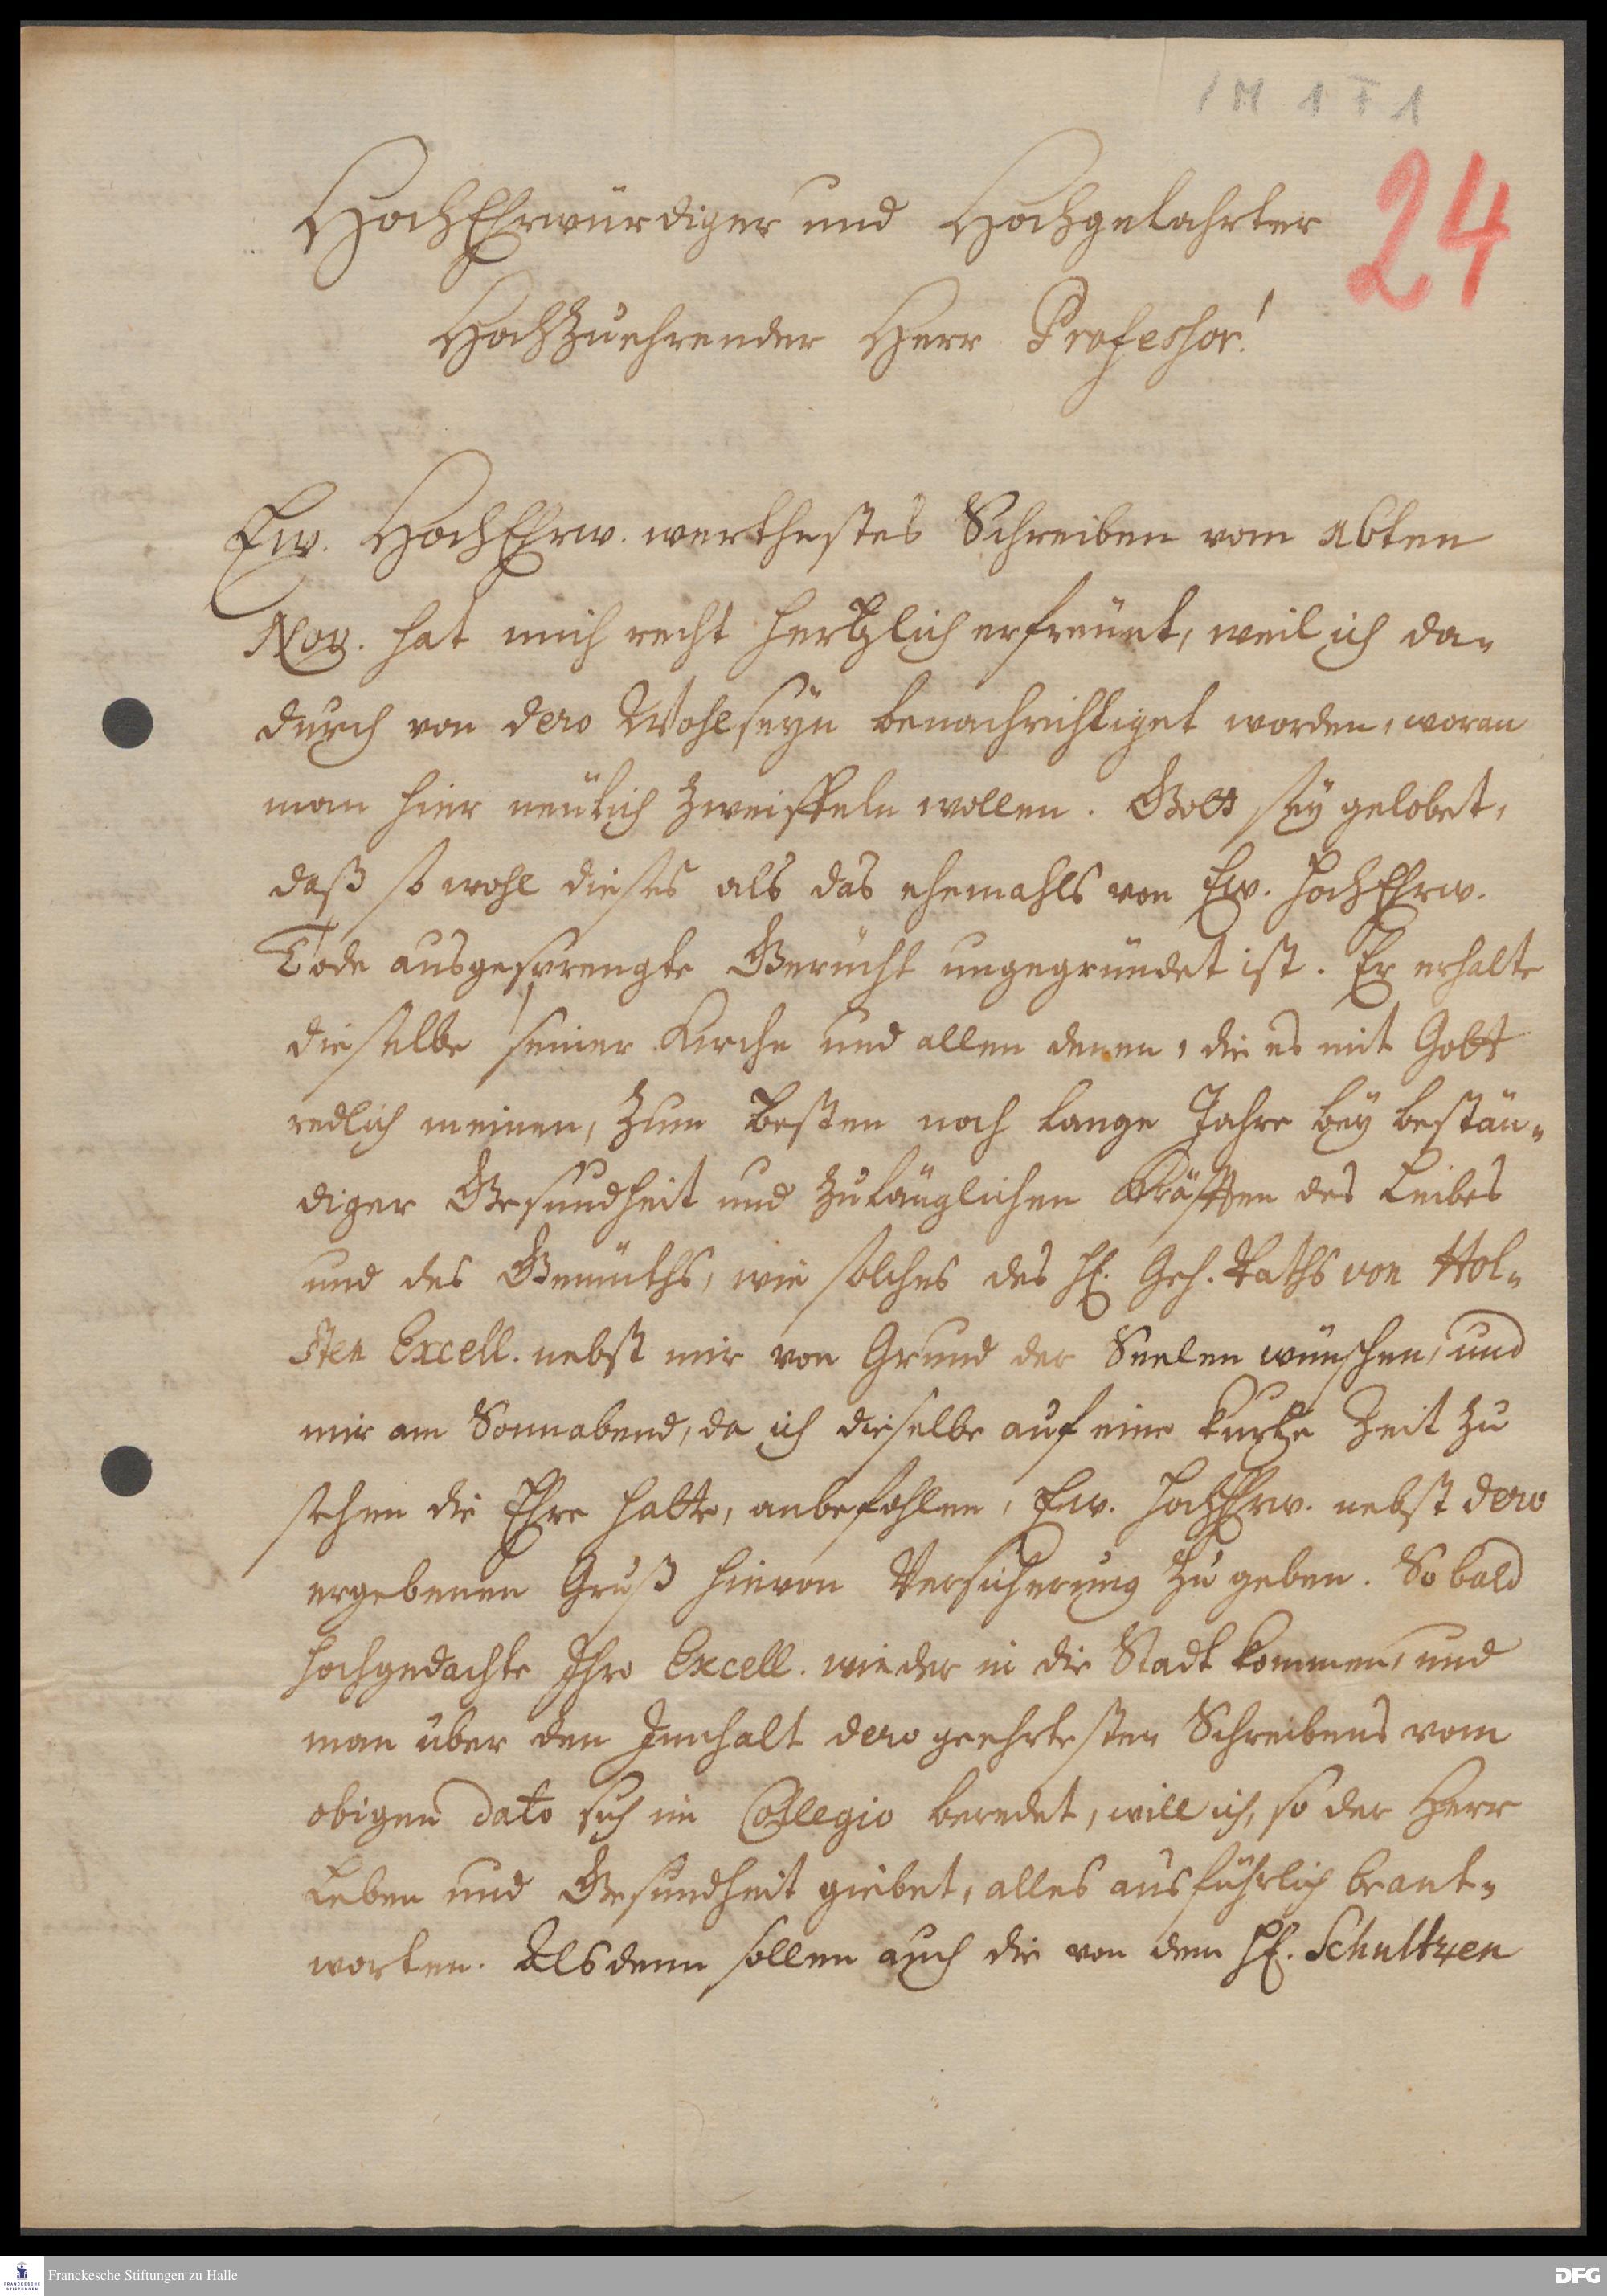 1 M 1 F 1
24
HochEhrwürdiger und Hochgelahrter
HochZuehrender Herr Professor!
Ew. HochEhrw. werthestes Schreiben vom 16ten
Nov. hat mich recht hertzlich erfreüet, weil ich da-
durch von dero Wohlseyn benachrichtiget worden, woran
man hier neülich zweiffeln wollen. Gott sey gelobet,
daß so wohl dieses als das ehemahls von Ew. HochEhrw.
Tode ausgesprengte Gerücht ungegründet ist. Er erhalte
dieselbe seiner Kirche und allen denen, die es mit Gott
redlich meinen, zum Besten noch lange Jahre bey bestän-
diger Gesundheit und zulänglichen Kräfften des Leibes
und des Gemüths, wie solches des H. Geh. Raths von Hol-
sten Excell. nebst mir von Grund der Seelen wünschen, und
mir am Sonnabend, da ich dieselbe auf eine kurtze Zeit zu
sehen die Ehre hatte, anbefohlen, Ew. HochEhrw. nebst dero
ergebenen Gruß hievon Versicherung zu geben. So bald
hochgedachte Ihro Excell. wieder in die Stadt kommen, und
man über den Innhalt dero geehrtesten Schreibens vom
obigen dato sich im Collegio beredet, will ich, so der Herr
Leben und Gesundheit giebet, alles ausführlich beant-
worten. Alsdenn sollen auch die von dem H. Schultzen
Franckesche Stiftungen zu Halle
DFG